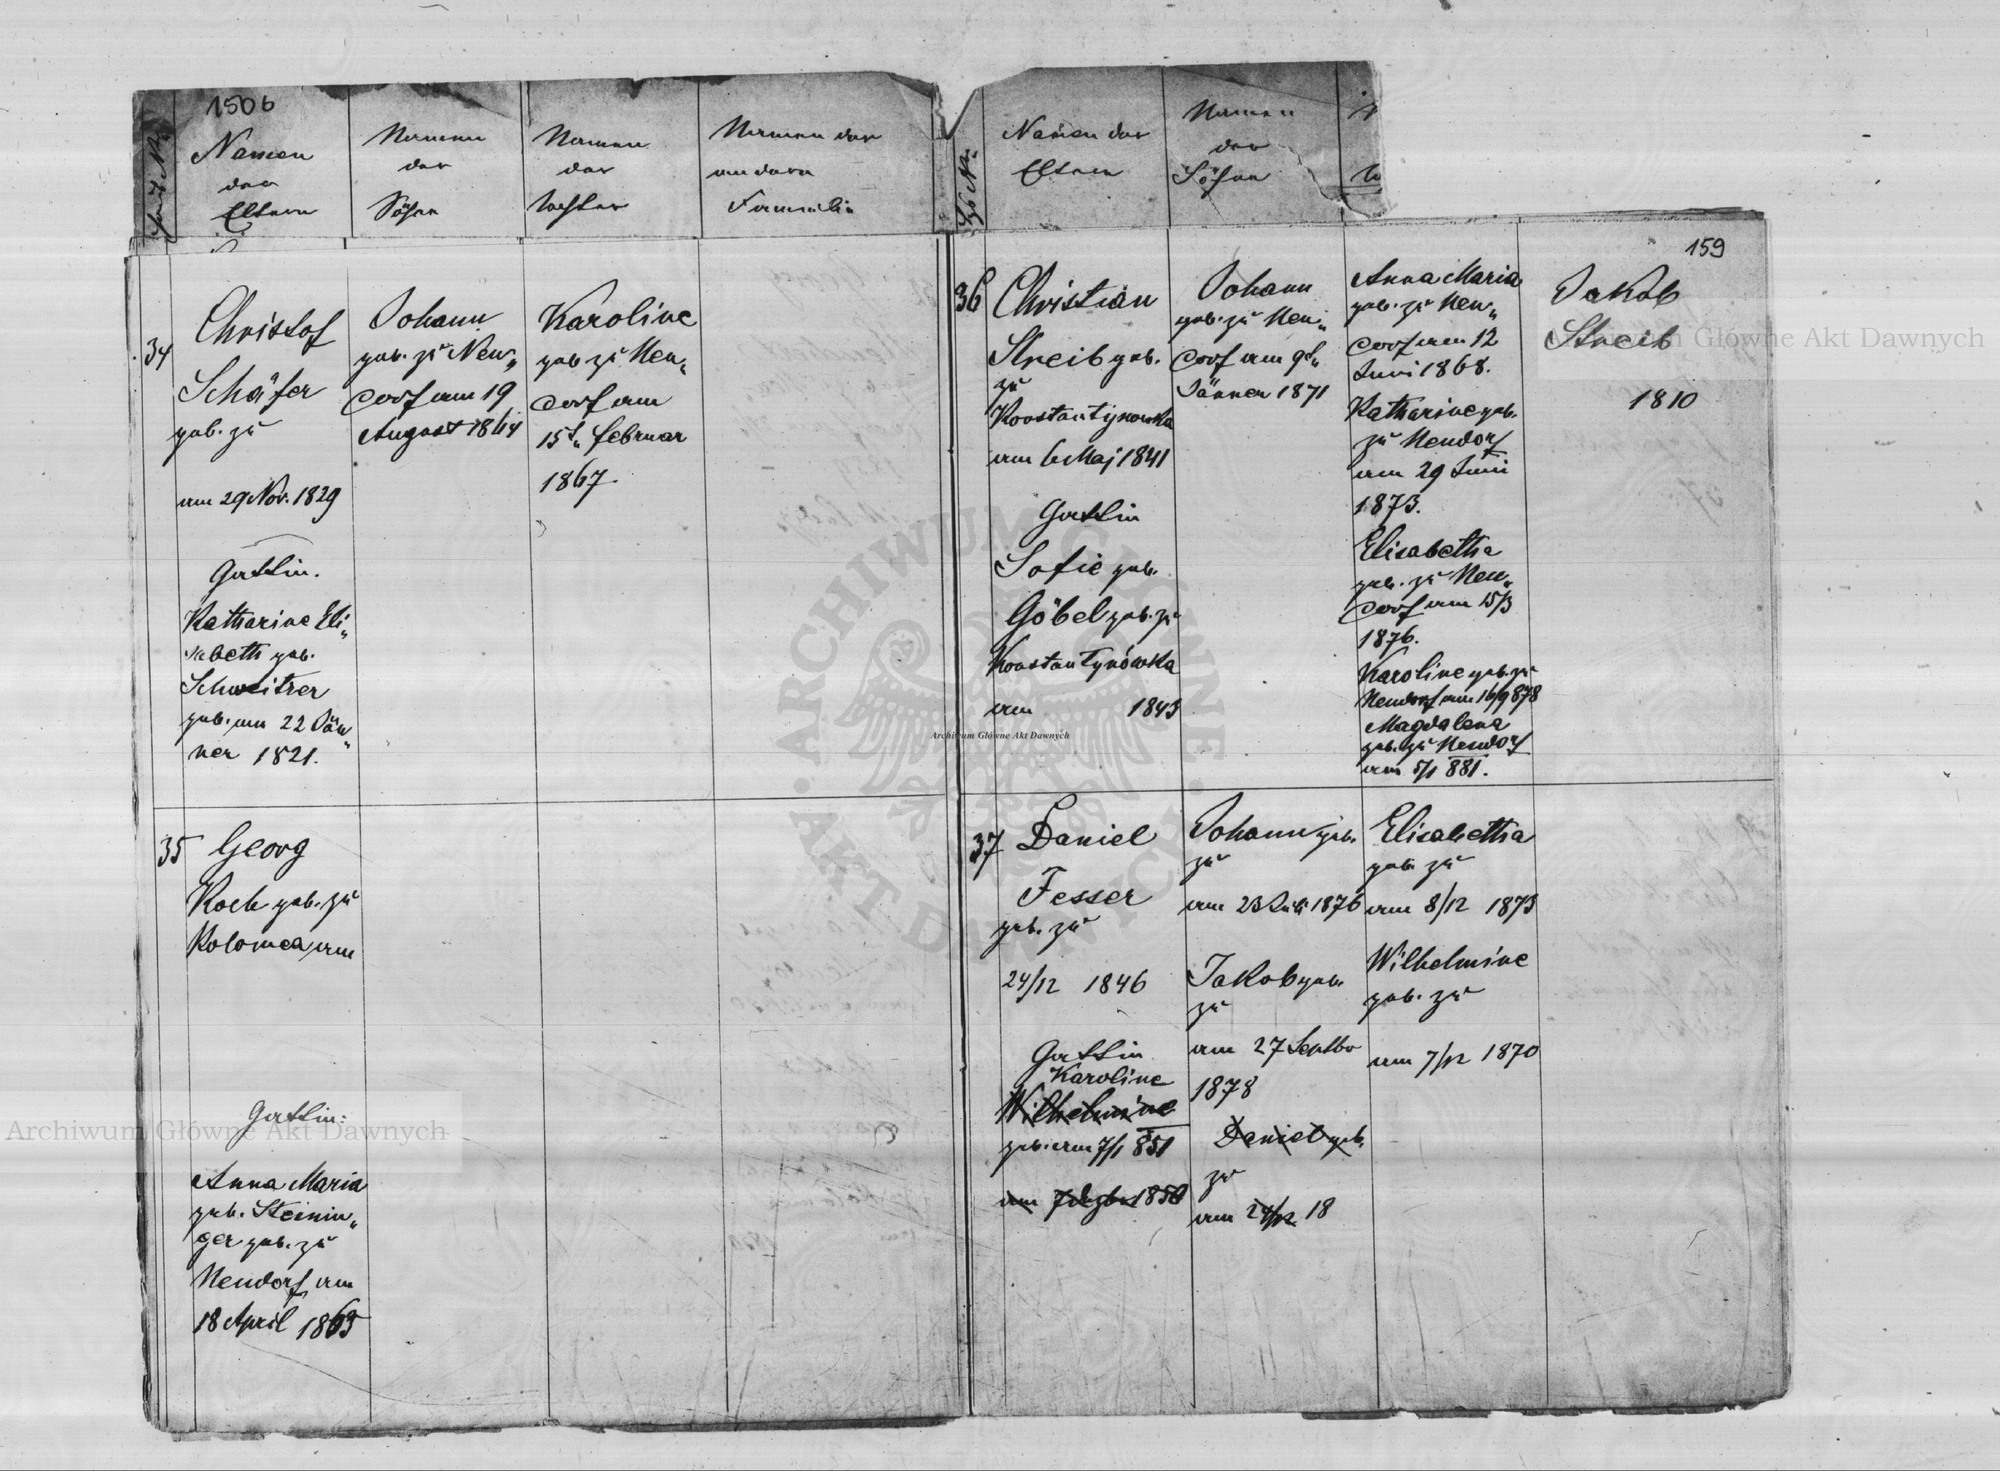 150b
Namen
der
Eltern
Namen
der
Söhne
Namen
der
Töchter
Namen der
andern
Familie
34
Christof
Schäfer
geb. zu
am 29 Nov. 1829
Gattin.
Katharine Eli„
sabeth geb.
Schweitzer
geb. am 22 Jän„
ner 1821.
Johann
geb. zu Neu„
dorf am 19
August 1864
Karoline
geb zu Neu„
dorf am
15t. februar
1867.
35
Georg
Koch geb. zu
Kolomea am
Gattin:
Anna Maria
geb. Steinin„
ger geb. zu
Neudorf am
18 April 1863
Namen der
Eltern
Namen
der
Söhne
159
36
Christian
Streib geb.
zu
Konstantynowka
am 6 Maj 1841
Gattin
Sofie geb.
Göbel geb. zu
Konstantynówka
am 1843
Johann
geb. zu Neu„
dorf am 9t.
Jänner 1871
Anna Maria
geb. zu Neu„
dorf am 12
Juni 1868.
Katharine geb.
zu Neudorf
am 29 Juni
1873.
Elisabetha
geb. zu Neu„
dorf am 15/3
1876.
Karoline geb. zu
Neudorf am 16/9 878
Magdalena
geb. zu Neudorf
am 5/1 881.
Jakob
Streib
1810
37
Daniel
Fesser
geb. zu
24/12 1846
Gattin
Karoline
Wilhelmine
geb. am 7/1 851
am 7 dezbr 1850
Johann geb.
zu
am 23 Juli 1876
Jakob geb.
zu
am 27 Septbr
1878
Daniel geb.
zu
am 24/12 18
Elisabetha
geb. zu
am 8/12 1873
Wilhelmine
geb. zu
am 7/12 1870
Archiwum Główne Akt Dawnych
Archiwum Główne Akt Dawnych
Archiwum Główne Akt Dawnych
ARCHIWUM GŁÓWNE
AKT DAWNYCH